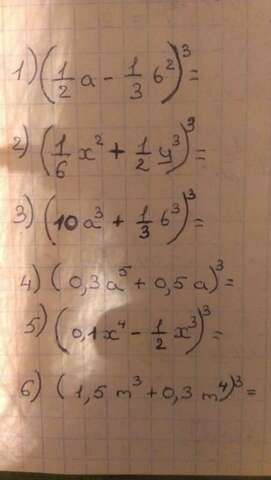 1) (1/2 a - 1/3 b²)³ =
2) (1/6 x² + 1/2 y³)³ =
3) (10a³ + 1/3 b³)³ =
4) (0,3a⁵ + 0,5a)³ =
5) (0,1x⁴ - 1/2 x³)³ =
6) (1,5 m³ + 0,3 m⁴)³ =